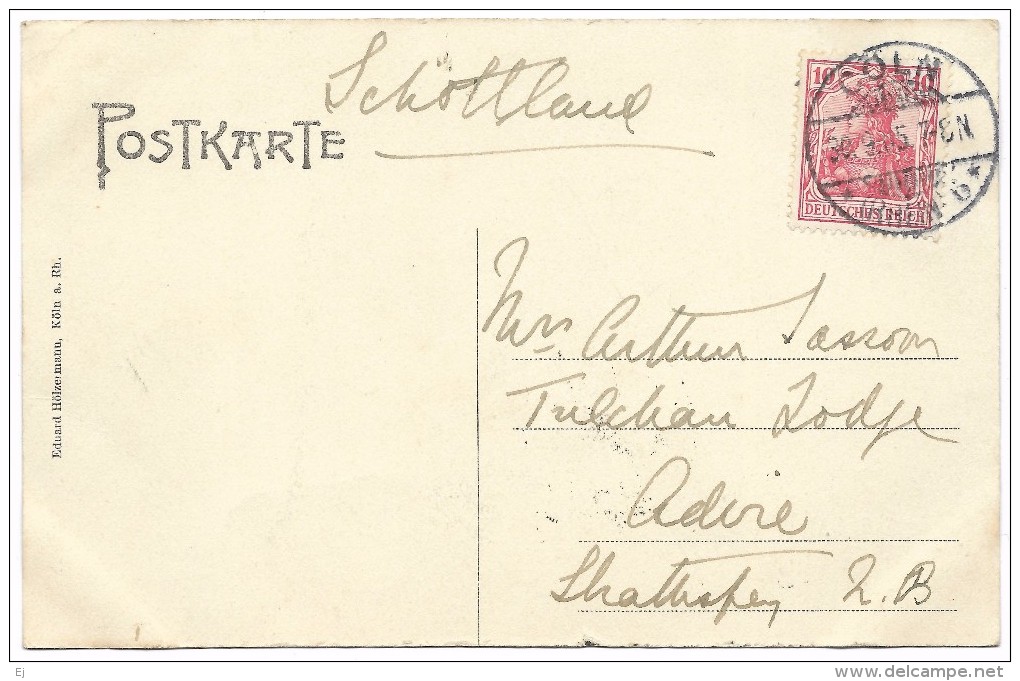 Schottland
POSTKARTE
10 10
DEUTSCHES REICH
CÖLN
Eduard Hölzermann, Köln a. Rh.
Mrs Arthur Sassoon
Tulchan Lodge
Advie
Strathspey N.B
Ej
delcampe.net